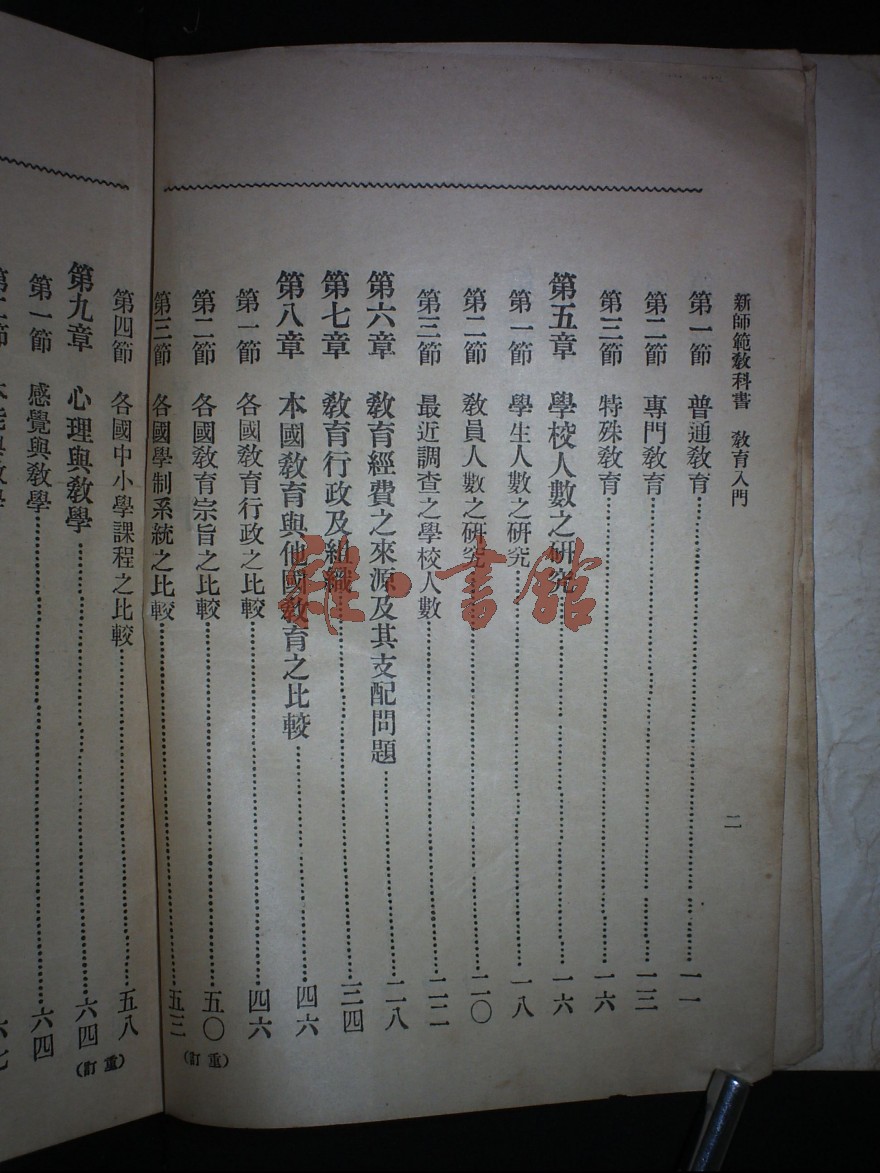 新師範教科書 教育入門 二
第一節 普通教育 一一
第二節 專門教育 一三
第三節 特殊教育 一六
第五章 學校人數之研究 一六
第一節 學生人數之研究 一八
第二節 教員人數之研究 二〇
第三節 最近調查之學校人數 二二
第六章 教育經費之來源及其支配問題 二八
第七章 教育行政及組織 三四
第八章 本國教育與他國教育之比較 四六
第一節 各國教育行政之比較 四六
第二節 各國教育宗旨之比較 五〇
(重訂)
第三節 各國學制系統之比較 五三
第四節 各國中小學課程之比較 五八
(重訂)
第九章 心理與教學 六四
第一節 感覺與教學 六四
六七
雅·書館